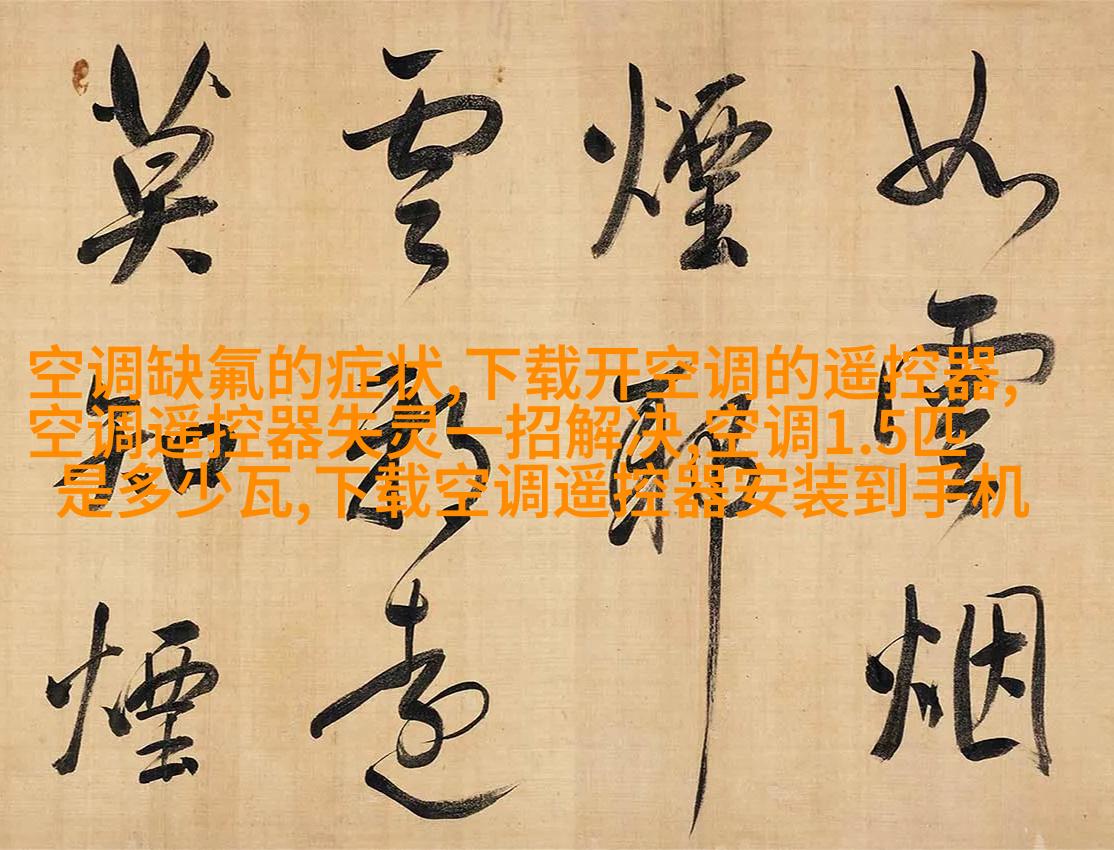 如雲烟
煙耶
雲遠
莫知煙
空调缺氟的症状,下载开空调的遥控器,
空调遥控器失灵一招解决,空调1.5匹
是多少瓦,下载空调遥控器安装到手机